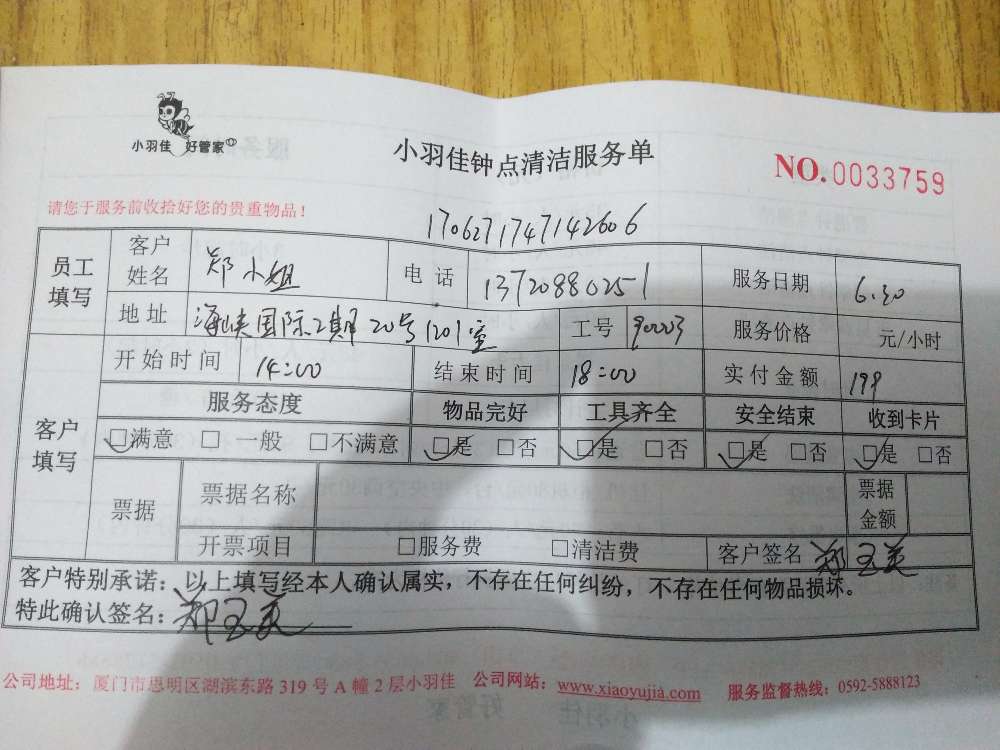 小羽佳 好管家
小羽佳钟点清洁服务单
NO.0033759
请您于服务前收拾好您的贵重物品！
170627174714 2606
员工填写 客户姓名 郑小姐 电话 13720880251 服务日期 6.30
地址 海峡国际2期20号1201室 工号 90003 服务价格 元/小时
客户填写 开始时间 14:00 结束时间 18:00 实付金额 199
服务态度 物品完好 工具齐全 安全结束 收到卡片
☑满意 □一般 □不满意 ☑是 □否 ☑是 □否 ☑是 □否 ☑是 □否
票据 票据名称 票据金额
开票项目 □服务费 □清洁费 客户签名 郑玉美
客户特别承诺：以上填写经本人确认属实，不存在任何纠纷，不存在任何物品损坏。
特此确认签名：郑玉美
公司地址：厦门市思明区湖滨东路319号A幢2层小羽佳 公司网站：www.xiaoyujia.com 服务监督热线：0592-5888123